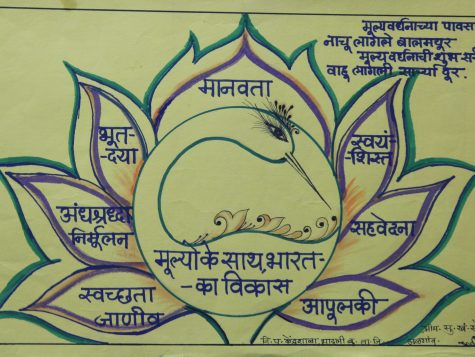 मूल्यवर्धनाच्या पावसा
नाचू लागले बालमयूर
मूल्यवर्धनाची शुभ-सं
वाढू लागली साऱ्या दूर-
मानवता
भूत-
-दया
स्वयं-
-शिस्त
अंधश्रध्दा
निर्मूलन
सहवेदना
स्वच्छता
जाणीव
आपूलकी
मूल्यों के साथ, भारत-
-का विकास
जि. प. केंद्रशाळा